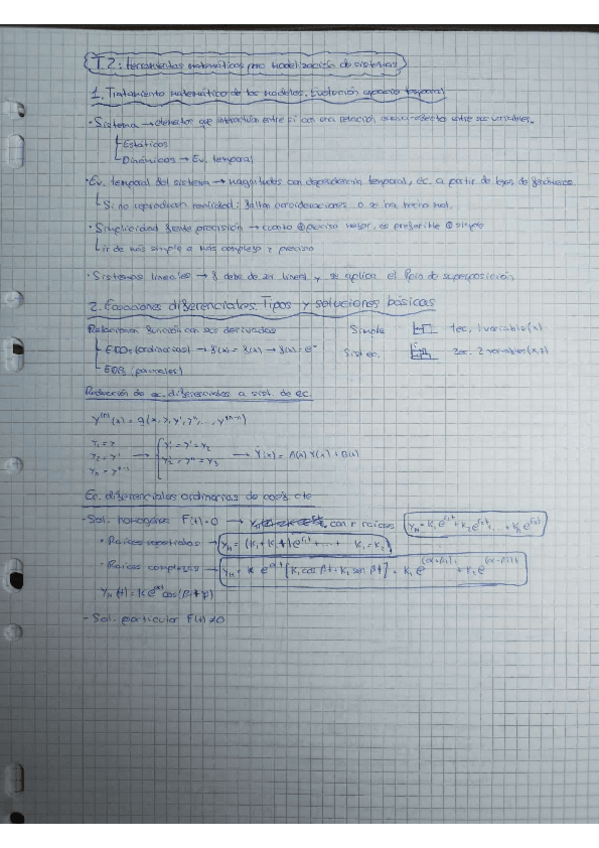 T2: Herramientas matemáticas para modelización de sistemas
1. Tratamiento matemático de los modelos. Evolución espacio temporal
· Sistema → elementos que interactúan entre sí con una relación causa-efecto entre sus variables.
Estáticos
Dinámicos → Ev. temporal
· Ev. temporal del sistema → magnitudes con dependencia temporal, ec. a partir de leyes de
Si no reproducen realidad: faltan consideraciones o se ha hecho mal.
· Simplicidad frente precisión → cuanto ⊕ preciso mejor, es preferible ⊕ simple
Ir de más simple a más complejo y preciso
· Sistemas lineales → f debe de ser lineal y se aplica el Ppio de superposición
2. Ecuaciones diferenciales. Tipos y soluciones básicas
Relacionan función con sus derivadas
Simple 1ec. 1variable (x)
EDOs (ordinarias) →
Sist ec. 2ec. 2 variables (x,z)
EDPs (parciales)
Reducción de ec. diferenciales a sist. de ec.
y⁽ⁿ⁾(x) = g(x, y, y', y'', ..., y⁽ⁿ⁻¹⁾)
Y₁ = y
Y₂ = y'
Yₙ = yⁿ⁻¹
→ { Y₁' = y' = Y₂
Y₂' = y'' = Y₃
→ Y'(x) = A(x) Y(x) + B(x)
Ec. diferenciales ordinarias de coef. cte
- Sol. homogénea F(t)=0 → con r raíces yₕ = K₁e^(r₁t) + K₂e^(r₂t) + ... + Kₑ^(rₙt)
· Raíces repetidas → yₕ = (K₁ + K₂t) e^(r₁t) + ... K₁ = K₂
· Raíces complejas → yₕ = e^(αt) [K₁ cos βt + K₂ sen βt] = K₁e^((α+βi)t) + K₂e^((α-βi)t)
yₕ(t) = K e^(αt) cos(βt+φ)
- Sol. particular F(t) ≠ 0